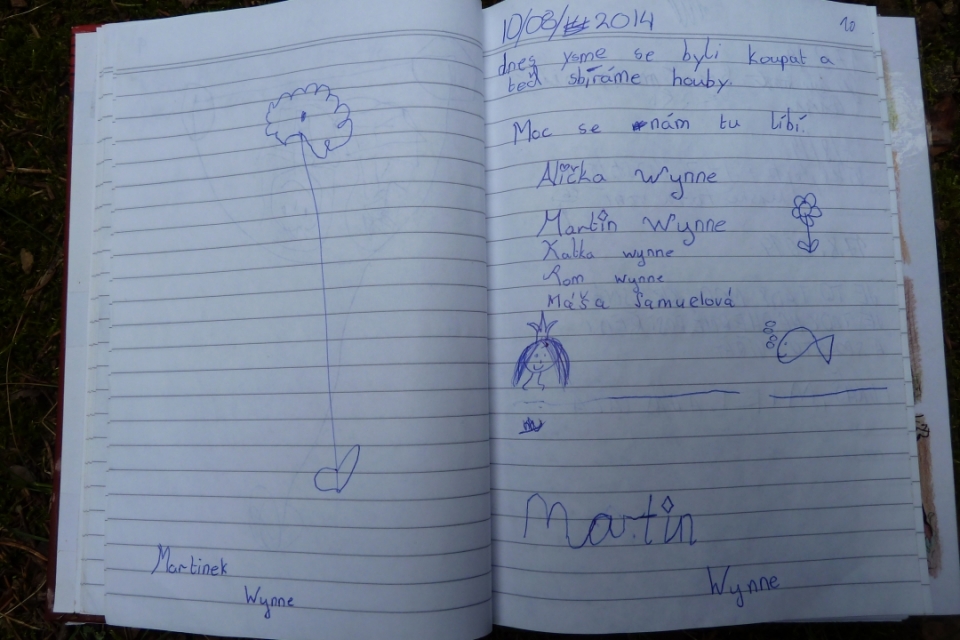 Martinek
Wynne
10/08/ 2014
10
dnes ysme se byli koupat a
teď sbíráme houby.
Moc se nám tu líbí.
Alička Wynne
Martin Wynne
Katka wynne
Rom wynne
Máša Samuelová
Martin
Wynne